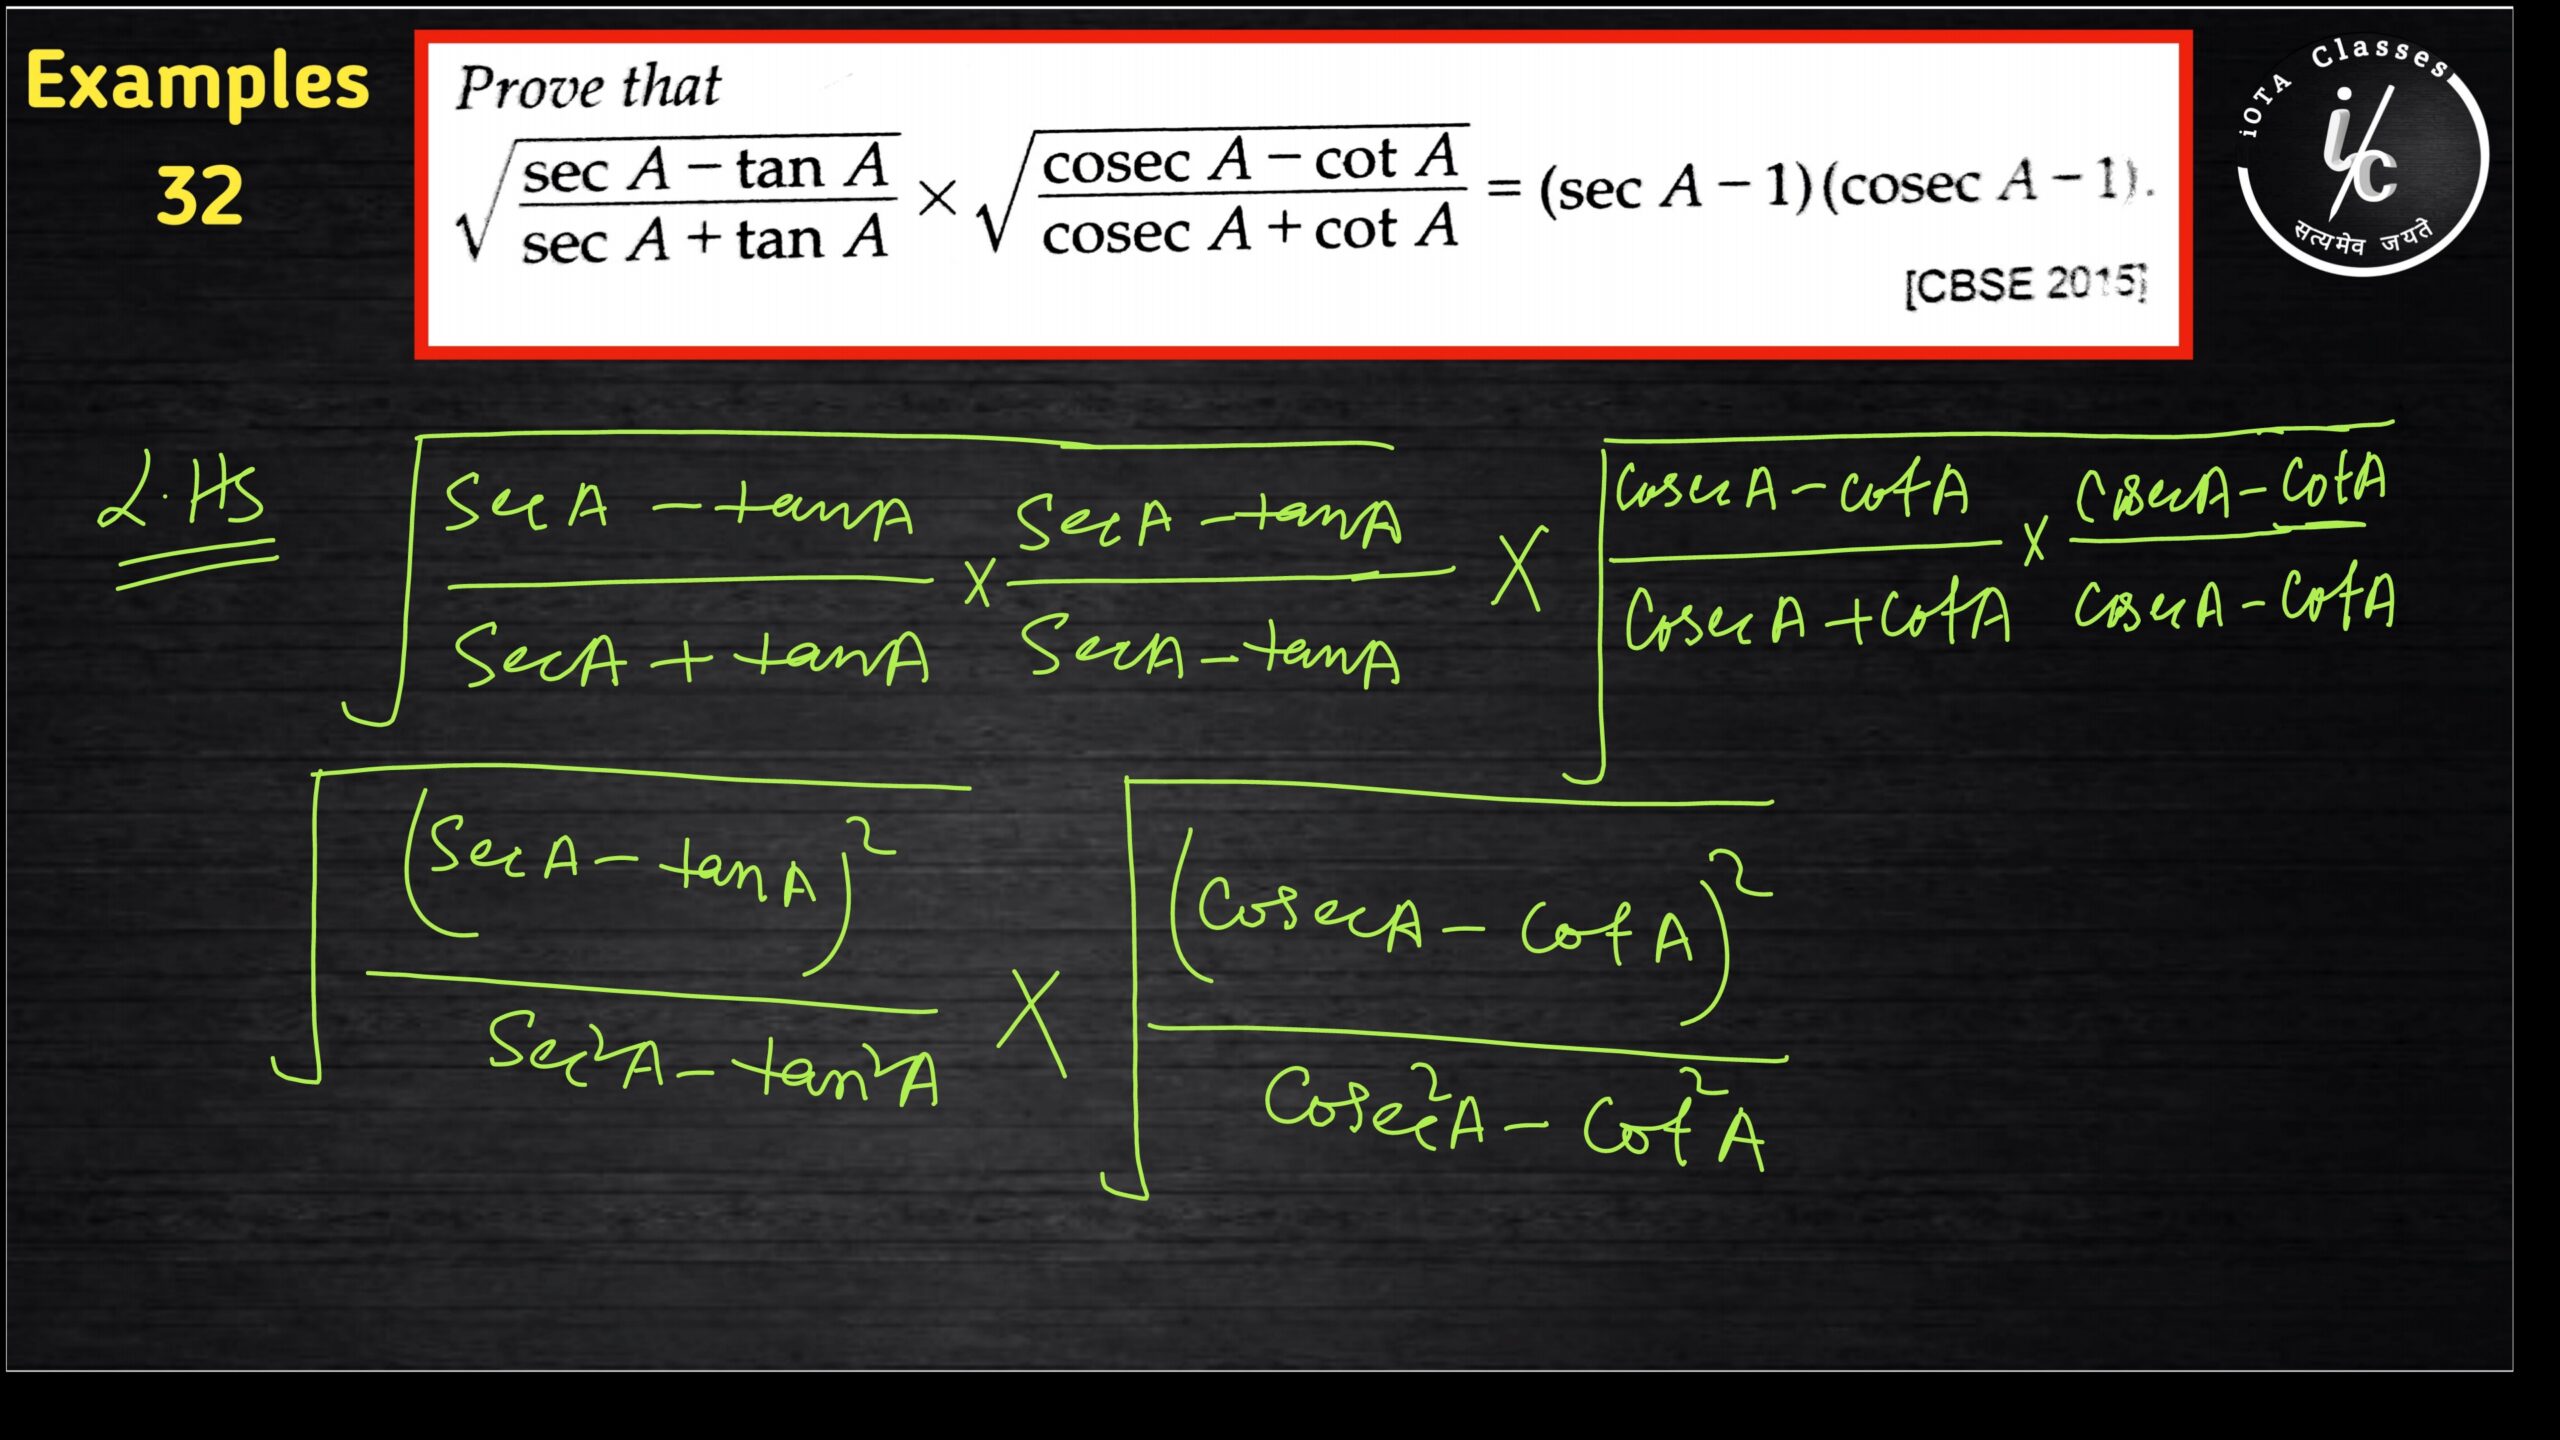 Examples
32
Prove that
√((sec A − tan A)/(sec A + tan A)) × √((cosec A − cot A)/(cosec A + cot A)) = (sec A − 1)(cosec A − 1).
[CBSE 2015]
iOTA Classes
i/c
सत्यमेव जयते
L.HS √((Sec A − tan A)/(Sec A + tan A) × (Sec A − tan A)/(Sec A − tan A)) × √((Cosec A − cot A)/(Cosec A + Cot A) × (Cosec A − Cot A)/(Cosec A − Cot A))
√((Sec A − tan A)²/(Sec²A − tan²A)) × √((Cosec A − Cot A)²/(Cosec²A − Cot²A))